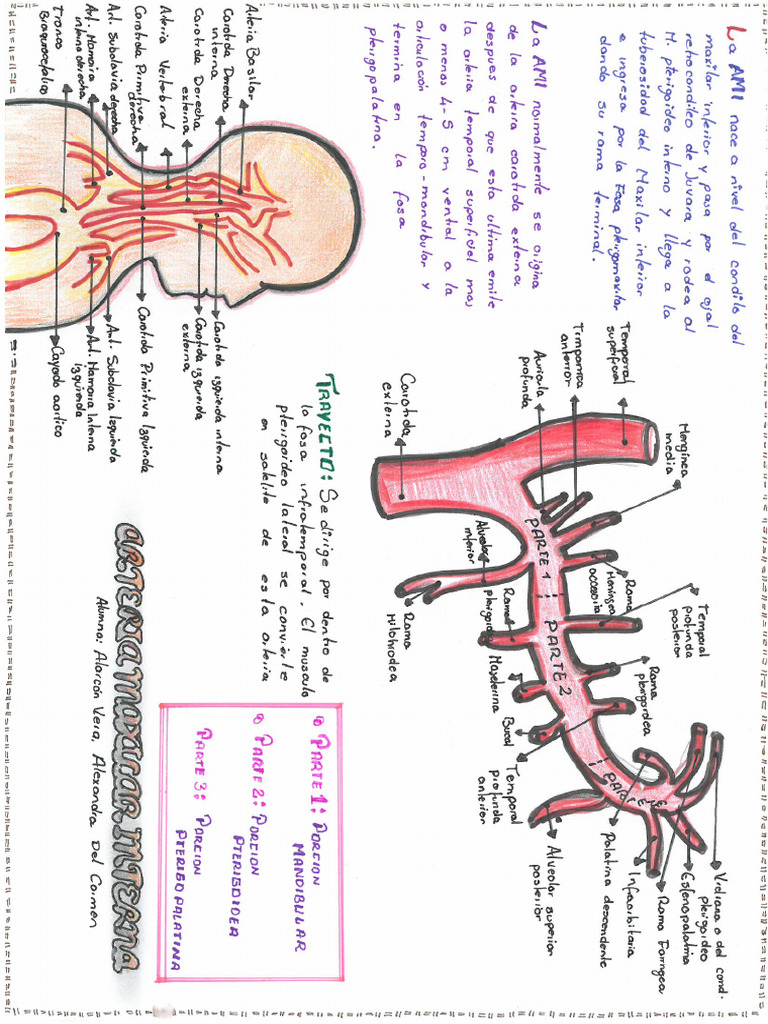 ARTERIA MAXILAR INTERNA
Alumna: Alarcón Vera, Alexandra Del Carmen
La AMI nace a nivel del condilo del
maxilar inferior y pasa por el ojal
retrocondileo de Juvara y rodea al
M. pterigoideo interno y llega a la
tuberosidad del Maxilar inferior
e ingresa por la Fosa pterigomaxilar
dando su rama terminal.
La AMI normalmente se origina
de la arteria carotida externa
despues de que esta ultima emite
la arteria temporal superficial mas
o menos 4-5 cm ventral a la
articulación temporo-mandibular y
termina en la fosa
pterigopalatina.
Arteria Basilar
Carotida Derecha
interna
Carotida Derecha
externa
Arteria Vertebral
Carotida Primitiva
derecha
Art. Subclavia derecha
Art. Mamaria
interna derecha
Tronco
Braquiocefalico
Carotida izquierda interna
Carotida izquierda
externa
Carotida Primitiva Izquierda
Art. Subclavia Izquierda
Art. Mamaria Interna
Izquierda
Cayado aortico
Temporal
superficial
Timpanica
anterior
Auricula
profunda
Carotida
externa
Meningea
media
Rama
Meningea
accesoria
Temporal
profunda
posterior
Rama
pterigoidea
Vidiana o del cond.
pterigoideo
Esfenopalatina
Rama Faringea
Infraorbitaria
Palatina descendente
Alveolar superior
posterior
Temporal
profunda
anterior
Bucal
Maseterina
Rama
pterigoid
Alveolar
inferior
Rama
Milohioidea
PARTE 1
PARTE 2
PARTE
TRAYECTO: Se dirige por dentro de
la fosa infratemporal. El musculo
pterigoideo lateral se convierte
en satelite de esta arteria
PARTE 1: PORCION
MANDIBULAR
PARTE 2: PORCION
PTERIGOIDEA
PARTE 3: PORCION
PTERIGOPALATINA